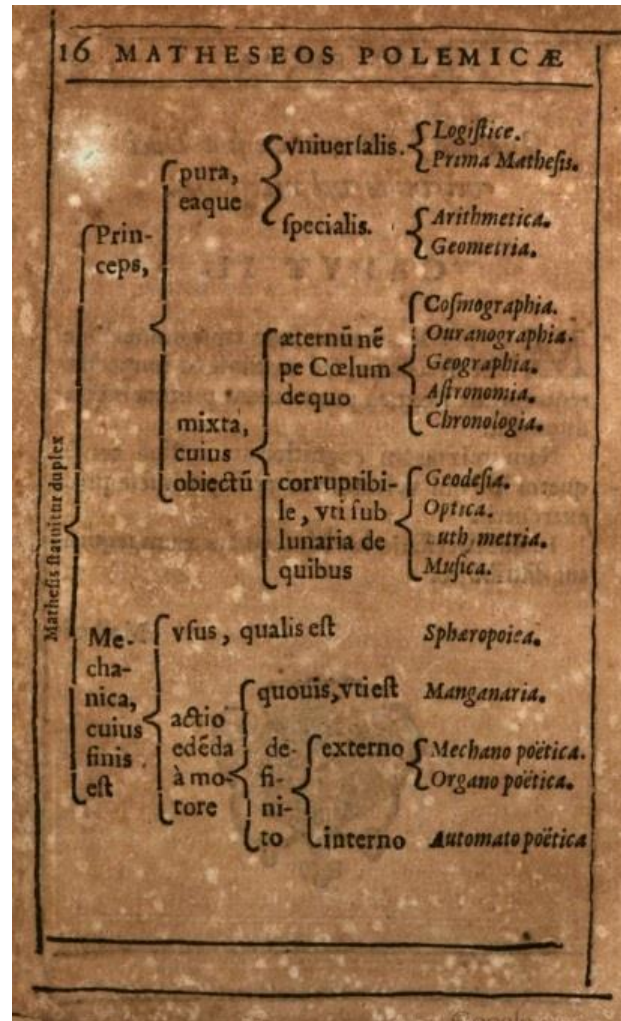 16 MATHESEOS POLEMICÆ
Mathesis statuitur duplex
Prin-
ceps,
pura,
eaque
vniuersalis.
Logistice.
Prima Mathesis.
specialis.
Arithmetica.
Geometria.
mixta,
cuius
obiectũ
æternũ nẽ
pe Cœlum
de quo
Cosmographia.
Ouranographia.
Geographia.
Astronomia.
Chronologia.
corruptibi-
le, vti sub
lunaria de
quibus
Geodesia.
Optica.
uth metria.
Musica.
Me-
cha-
nica,
cuius
finis
est
vsus, qualis est
Sphæropoiea.
actio
edẽda
à mo-
tore
quouis, vti est
Manganaria.
de-
fi-
ni-
to
externo
Mechano poëtica.
Organo poëtica.
interno
Automato poëtica